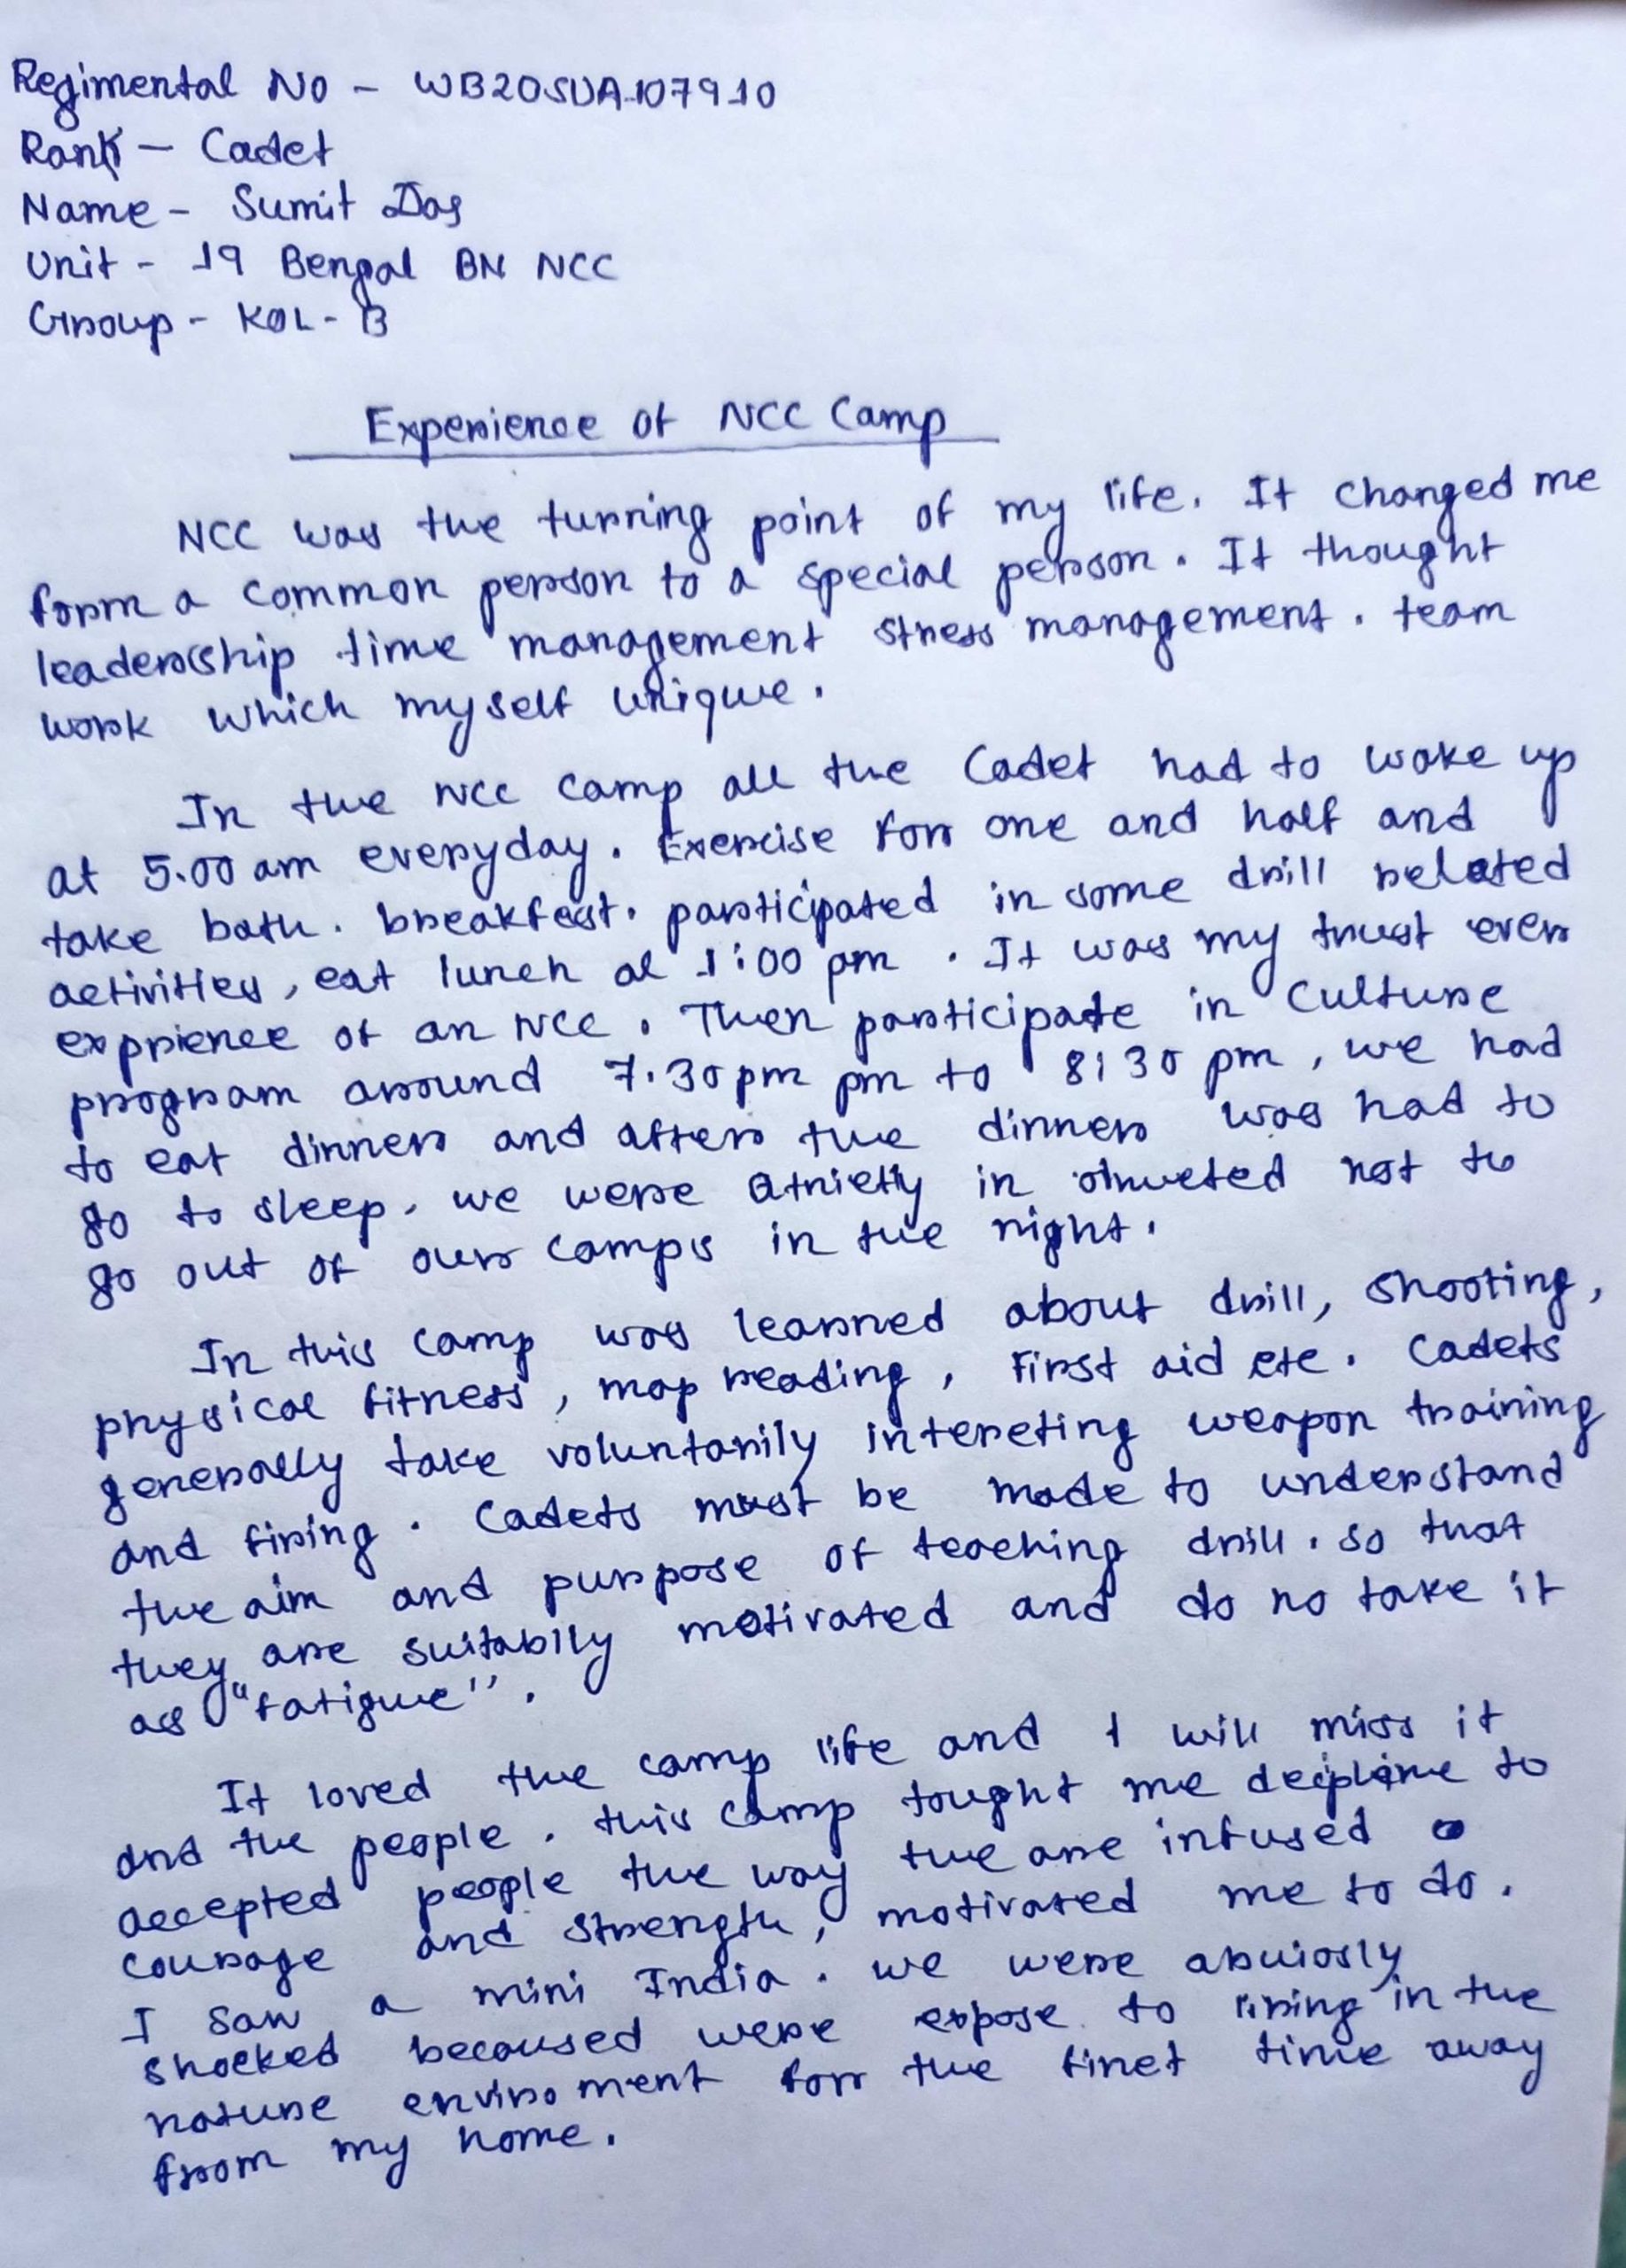 Regimental No - WB20SUA107910
Rank - Cadet
Name - Sumit Das
Unit - 19 Bengal BN NCC
Group - KOL-B
Experience of NCC Camp
NCC was the turning point of my life. It changed me
form a common person to a special person. It thought
leadership time management stress management. team
work which myself unique.
In the NCC camp all the Cadet had to wake up
at 5.00 am everyday. Exercise for one and half and
take bath. breakfast. participated in some drill related
activities, eat lunch at 1:00 pm. It was my trust ever
exprience of an NCC. Then participate in Culture
program around 7.30 pm pm to 8:30 pm, we had
to eat dinner and after the dinner was had to
go to sleep. we were in not to
go out of our camps in the night.
In this camp was learned about drill, shooting,
physical fitness, map reading, First aid etc. Cadets
generally take voluntarily intereting weapon training
and firing. Cadets must be made to understand
the aim and purpose of teaching drill. so that
they are suitabily motivated and do no take it
as "fatigue".
It loved the camp life and I will miss it
and the people. this camp tought me to
accepted people the way the are infused
courage and strength, motivated me to do.
I saw a mini India. we were abviosly
shocked becaused were expose to living in the
nature enviroment for the finet time away
from my home.